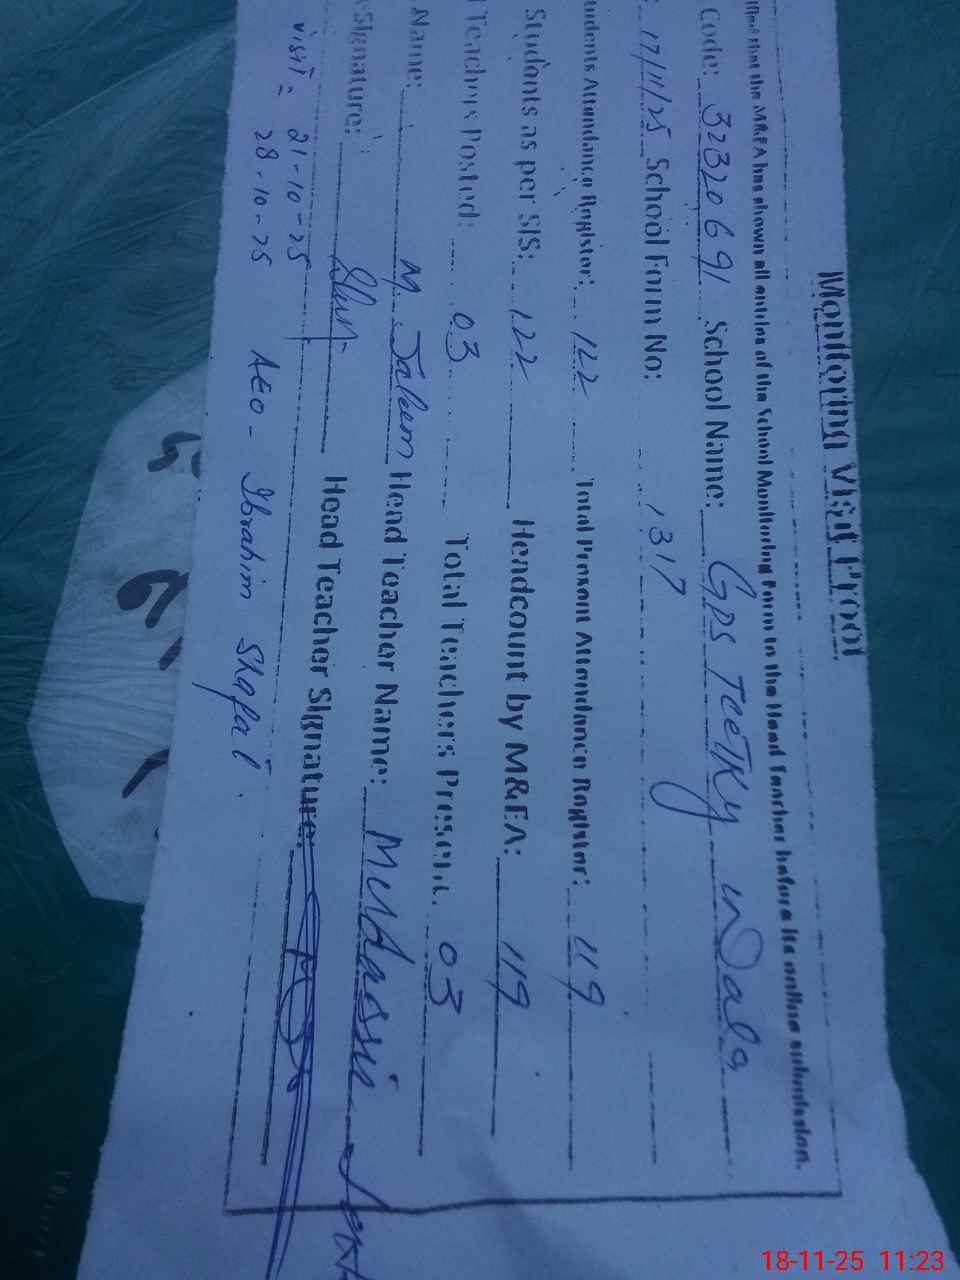 Monitoring Visit Proof
that the M&EA has shown all entries of the School Monitoring Form to the Head Teacher before its online submission.
Code: 32320691 School Name: GPS TαeTKy wala
: 17/11/25 School Form No: 1317
udents Attendance Register: 122 Total Present Attendance Register: 119
Students as per SIS: 122 Headcount by M&EA: 119
Teachers Posted: 03 Total Teachers Present: 03
Name: M. Saleem Head Teacher Name: Mudassir
Signature: Head Teacher Signature:
visit = 21-10-25
28-10-25 AEO - Ibrahim Shafat.
18-11-25 11:23